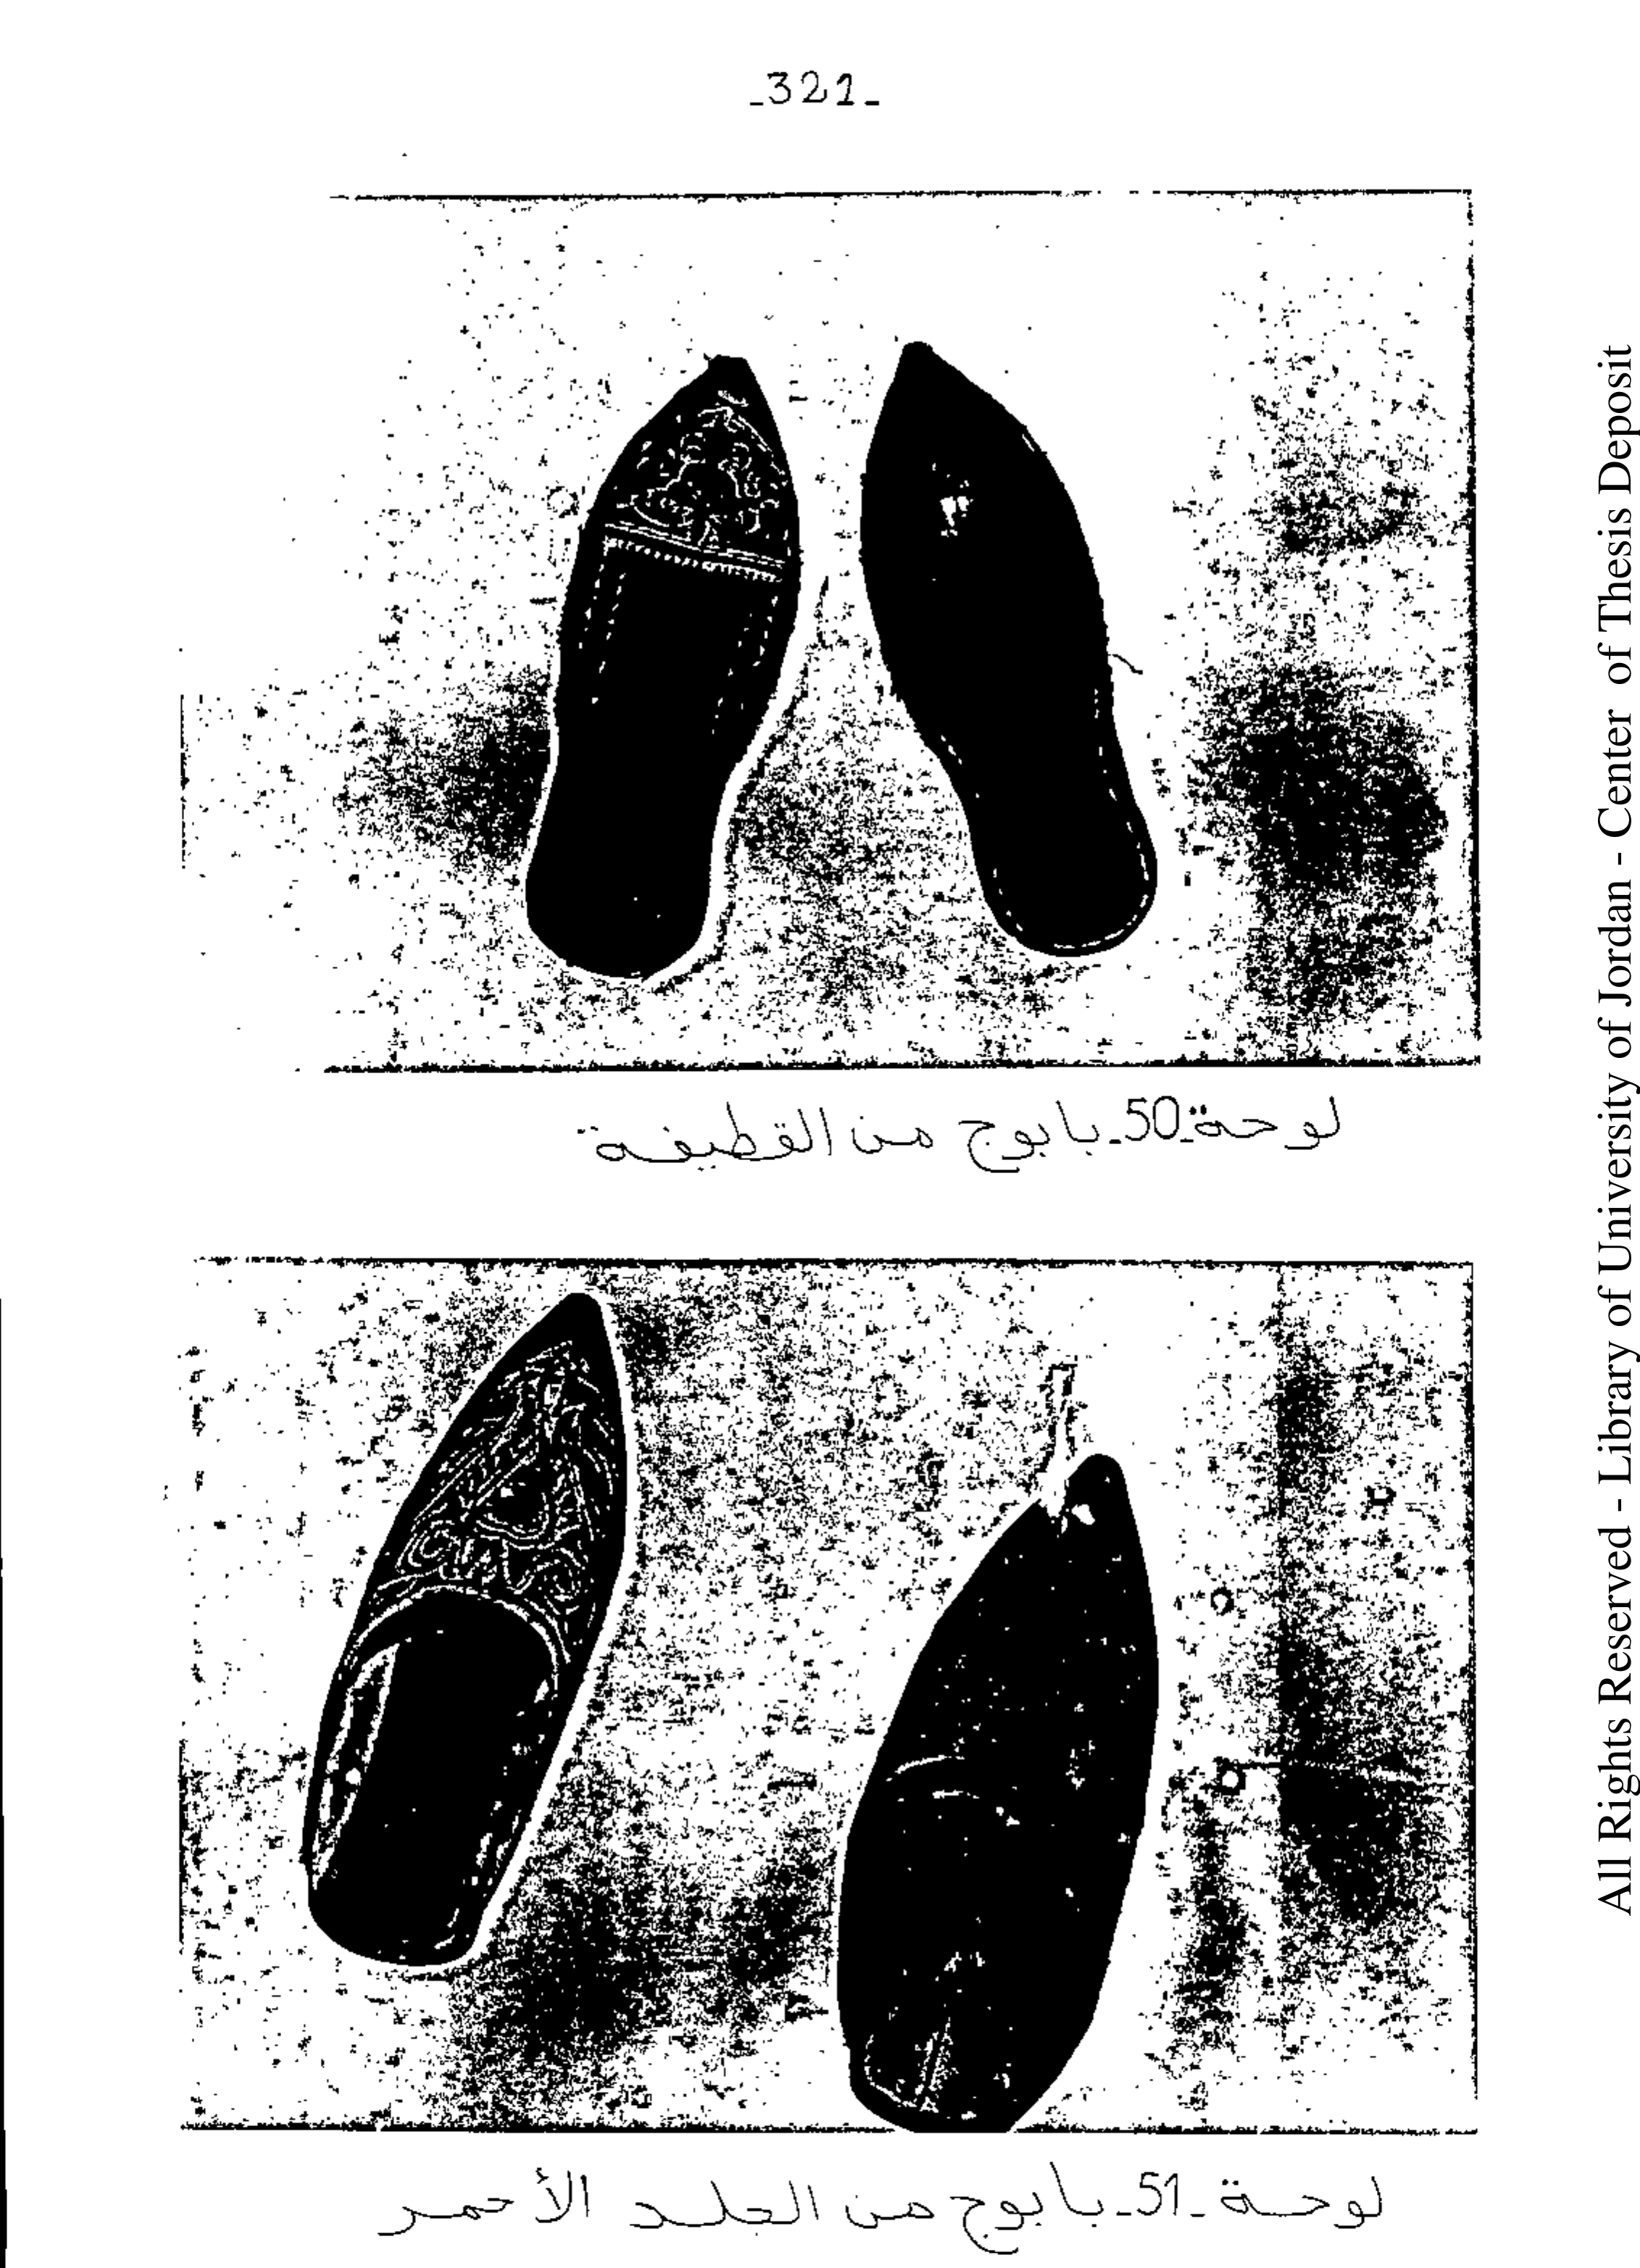 -321-
لوحة-50-بابوج من القطيفة
لوحة-51-بابوج من الجلد الأحمر
All Rights Reserved - Library of University of Jordan - Center of Thesis Deposit